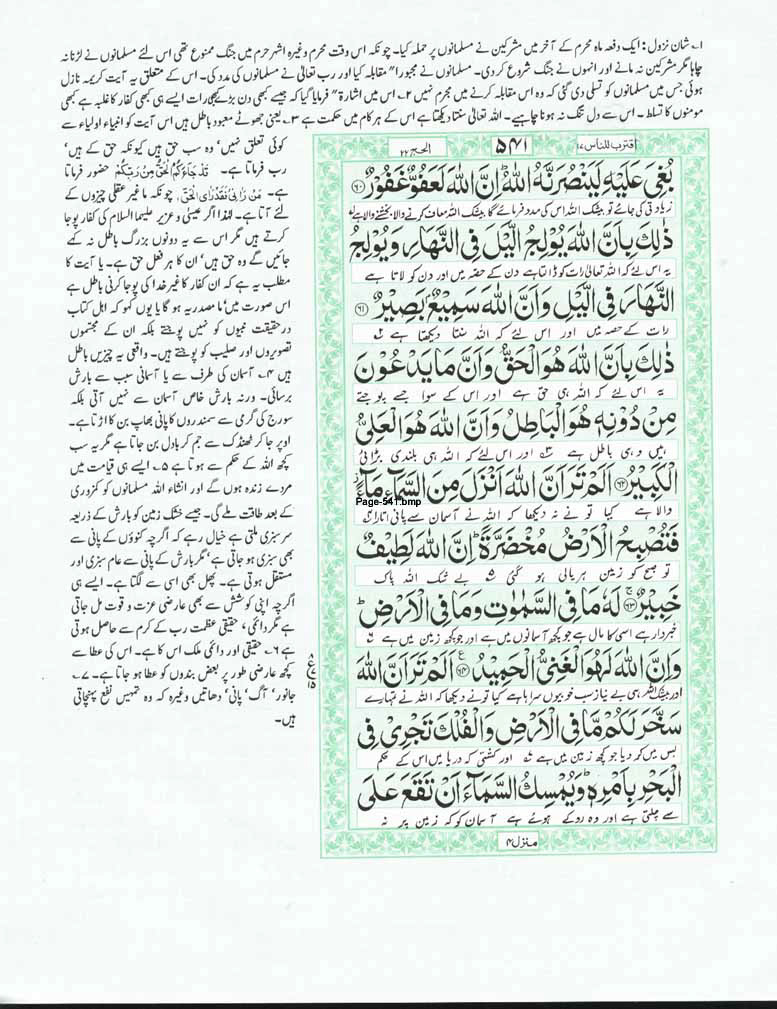 ۱۔ شان نزول: ایک دفعہ ماہ محرم کے آخر میں مشرکین نے مسلمانوں پر حملہ کیا۔ چونکہ اس وقت محرم وغیرہ اشہر حرم میں جنگ ممنوع تھی اس لئے مسلمانوں نے لڑنا نہ
چاہا مگر مشرکین نہ مانے اور انہوں نے جنگ شروع کر دی۔ مسلمانوں نے مجبوراً مقابلہ کیا اور رب تعالیٰ نے مسلمانوں کی مدد کی۔ اس کے متعلق یہ آیت کریمہ نازل
ہوئی جس میں مسلمانوں کو تسلی دی گئی کہ وہ اس مقابلہ کرنے میں مجرم نہیں ۲۔ اس میں اشارۃً فرمایا گیا کہ جیسے کبھی دن بڑے کبھی رات ایسے ہی کبھی کفار کا غلبہ ہے کبھی
مومنوں کا تسلط۔ اس سے دل تنگ نہ ہونا چاہیے۔ اللہ تعالیٰ سنتا دیکھتا ہے اس کے ہر کام میں حکمت ہے ۳۔ یعنی جھوٹے معبود باطل ہیں اس آیت کو انبیاء اولیاء سے
کوئی تعلق نہیں‘ وہ سب حق ہیں کیونکہ حق کے ہیں‘
رب فرماتا ہے۔ قَدْ جَاءَكُمُ الْحَقُّ مِنْ رَبِّكُمْ حضور فرماتا
ہے۔ مَنْ رَاٰنِیْ فَقَدْ رَاَی الْحَقَّ، چونکہ ما غیر عقلی چیزوں کے
لئے آتا ہے۔ لہٰذا اگر عیسیٰ و عزیر علیہما السلام کی کفار پوجا
کرتے ہیں مگر اس سے یہ دونوں بزرگ باطل نہ کہے
جائیں گے وہ حق ہیں‘ ان کا ہر فعل حق ہے۔ یا آیت کا
مطلب یہ ہے کہ ان کفار کا غیر خدا کی پوجا کرنی باطل ہے
اس صورت میں ما مصدریہ ہو گا یا یوں کہو کہ اہل کتاب
درحقیقت نبیوں کو نہیں پوجتے بلکہ ان کے مجسموں
تصویروں اور صلیب کو پوجتے ہیں۔ واقعی یہ چیزیں باطل
ہیں ۴۔ آسمان کی طرف سے یا آسمانی سبب سے بارش
برسائی۔ ورنہ بارش خاص آسمان سے نہیں آتی بلکہ
سورج کی گرمی سے سمندروں کا پانی بھاپ بن کا اڑتا ہے۔
اوپر جا کر ٹھنڈک سے جم کر بادل بن جاتا ہے مگر یہ سب
کچھ اللہ کے حکم سے ہوتا ہے ۵۔ ایسے ہی قیامت میں
مردے زندہ ہوں گے اور انشاء اللہ مسلمانوں کو کمزوری
کے بعد طاقت ملے گی۔ جیسے خشک زمین کو بارش کے ذریعہ
سرسبزی ملتی ہے خیال رہے کہ اگرچہ کنوؤں کے پانی سے
بھی سبزی ہو جاتی ہے‘ مگر بارش کے پانی سے عام سبزی اور
مستقل ہوتی ہے۔ پھل بھی اسی سے لگتا ہے۔ ایسے ہی
اگرچہ اپنی کوشش سے بھی عارضی عزت و قوت مل جاتی
ہے مگر دائمی‘ حقیقی عظمت رب کے کرم سے حاصل ہوتی
ہے ۶۔ حقیقی اور دائمی ملک اس کا ہے۔ اس کی عطا سے
کچھ عارضی طور پر بعض بندوں کو عطا ہو جاتا ہے۔ ۷۔
جانور‘ آگ‘ پانی‘ دھاتیں وغیرہ کہ وہ تمہیں نفع پہنچاتی
ہیں۔
اقترب للناس ۱۷ ۵۴۱ الحج ۲۲
بُغِيَ عَلَيْهِ لَيَنْصُرَنَّهُ اللّٰهُ ؕ اِنَّ اللّٰهَ لَعَفُوٌّ غَفُوْرٌ ﴿۶۰﴾
زیادتی کی جائے تو بیشک اللہ اس کی مدد فرمائے گا بیشک اللہ معاف کرنے والا بخشنے والا ہے ۱
ذٰلِكَ بِاَنَّ اللّٰهَ يُوْلِجُ الَّيْلَ فِي النَّهَارِ وَيُوْلِجُ
یہ اس لئے کہ اللہ تعالیٰ رات کو ڈالتا ہے دن کے حصہ میں اور دن کو لاتا ہے
النَّهَارَ فِي الَّيْلِ وَاَنَّ اللّٰهَ سَمِيْعٌۢ بَصِيْرٌ ﴿۶۱﴾
رات کے حصہ میں اور اس لئے کہ اللہ سنتا دیکھتا ہے ۲
ذٰلِكَ بِاَنَّ اللّٰهَ هُوَ الْحَقُّ وَاَنَّ مَا يَدْعُوْنَ
یہ اس لئے کہ اللہ ہی حق ہے اور اس کے سوا جسے پوجتے
مِنْ دُوْنِهٖ هُوَ الْبَاطِلُ وَاَنَّ اللّٰهَ هُوَ الْعَلِيُّ
ہیں وہی باطل ہے ۳ اور اس لئے کہ اللہ ہی بلندی بڑائی
الْكَبِيْرُ ﴿۶۲﴾ اَلَمْ تَرَ اَنَّ اللّٰهَ اَنْزَلَ مِنَ السَّمَآءِ مَآءً ؗ
Page-541.bmp
والا ہے کیا تو نے نہ دیکھا کہ اللہ نے آسمان سے پانی اتارا ۴
فَتُصْبِحُ الْاَرْضُ مُخْضَرَّةً ؕ اِنَّ اللّٰهَ لَطِيْفٌ
تو صبح کو زمین ہریالی ہو گئی ۵ بے شک اللہ پاک
خَبِيْرٌ ﴿۶۳﴾ لَهٗ مَا فِي السَّمٰوٰتِ وَمَا فِي الْاَرْضِ ؕ
خبردار ہے اسی کا مال ہے جو کچھ آسمانوں میں ہے اور جو کچھ زمین میں ہے ۶
وَاِنَّ اللّٰهَ لَهُوَ الْغَنِيُّ الْحَمِيْدُ ﴿۶۴﴾ اَلَمْ تَرَ اَنَّ اللّٰهَ
اور بیشک اللہ ہی بے نیاز سب خوبیوں سراہا ہے کیا تو نے دیکھا کہ اللہ نے تمہارے
سَخَّرَ لَكُمْ مَّا فِي الْاَرْضِ وَالْفُلْكَ تَجْرِيْ فِي
بس میں کر دیا جو کچھ زمین میں ہے ۷ اور کشتی کہ دریا میں اس کے حکم
الْبَحْرِ بِاَمْرِهٖ ؕ وَيُمْسِكُ السَّمَآءَ اَنْ تَقَعَ عَلَى
سے چلتی ہے اور وہ روکے ہوئے ہے آسمان کو کہ زمین پر نہ
منزل ۴